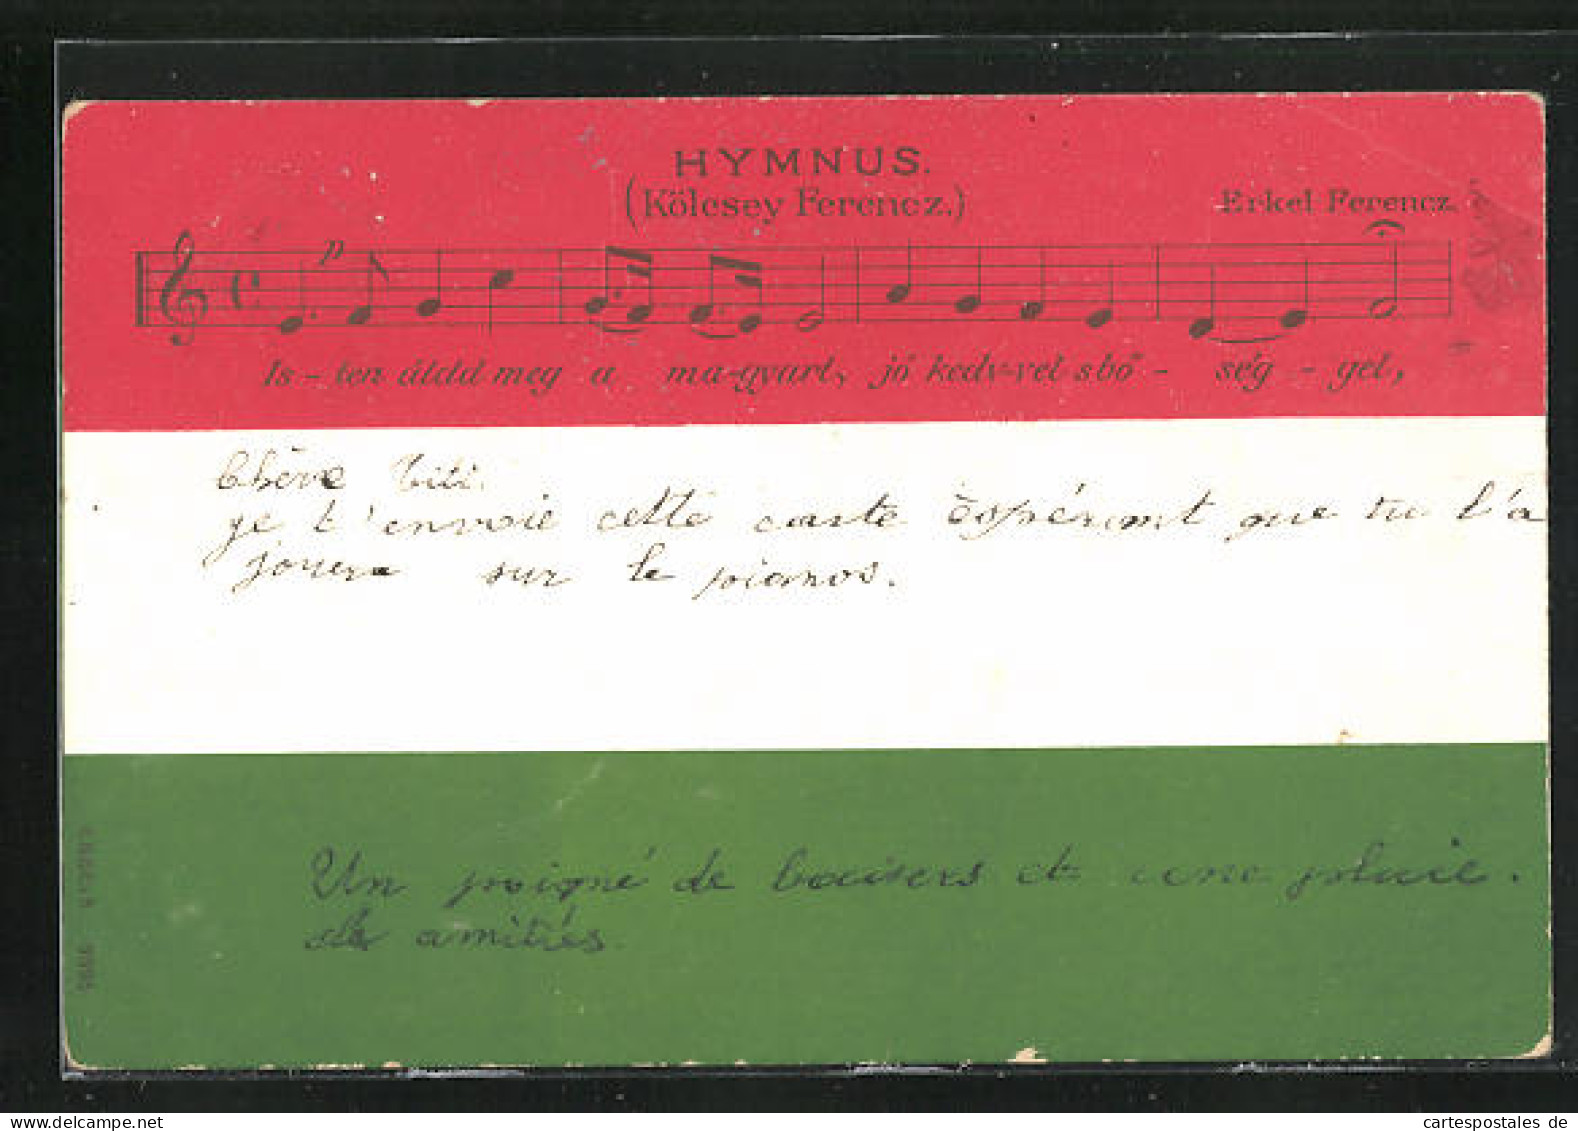 HYMNUS.
(Kölcsey Ferencz.)
Erkel Ferencz.
p
Is-ten áldd meg a ma-gyart, jó kedv-vel sbő - ség - gel,
Chère Titi.
je t'envoie cette carte espérant que tu l'a
jouera sur le pianos.
Un poigné de baisers et une pluie.
de amitiés
cartespostales de